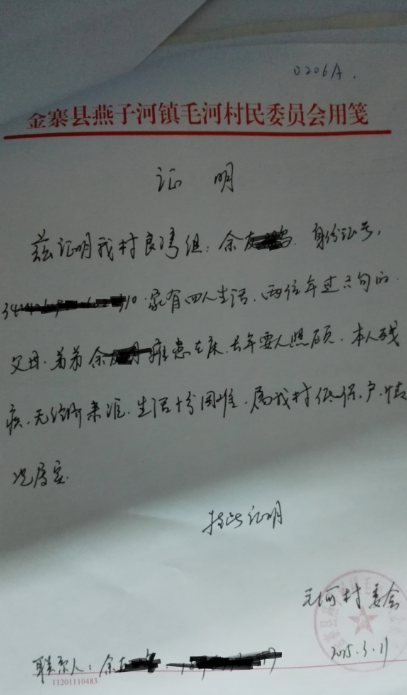 0206A.
金寨县燕子河镇毛河村民委员会用笺
证 明
兹证明我村良湾组：余友 身份证号，
34 10.家有四人生活，两位年过六旬的
父母.弟弟余 瘫患在床.长年要人照顾.本人残
疾.无经济来源.生活十分困难.属我村低保户.情
况属实.
特此证明
毛河村委会
2015.3.11
联系人：余
11201110483